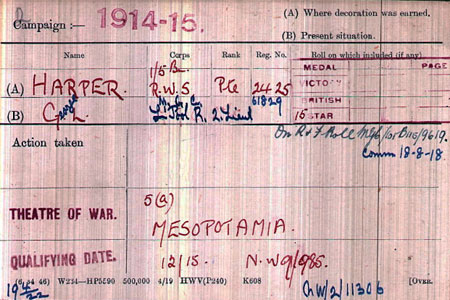 Campaign :— 1914-15.
(A) Where decoration was earned.
(B) Present situation.
Name Corps Rank Reg. No. Roll on which included (if any)
MEDAL PAGE
VICTORY
BRITISH
15 STAR
(A) HARPER 1/5 Bn R.W.S. Pte 2425
(B) George L. R. 2.Lieut 61829
On R & F Roll
Comm 18-8-18.
Action taken
THEATRE OF WAR. 5(a)
MESOPOTAMIA.
QUALIFYING DATE. 12/15. N.W 9/985.
(6 34 46) W234—HP5590 500,000 4/19 HWV(P240) K608 [OVER.
CW/2/11306